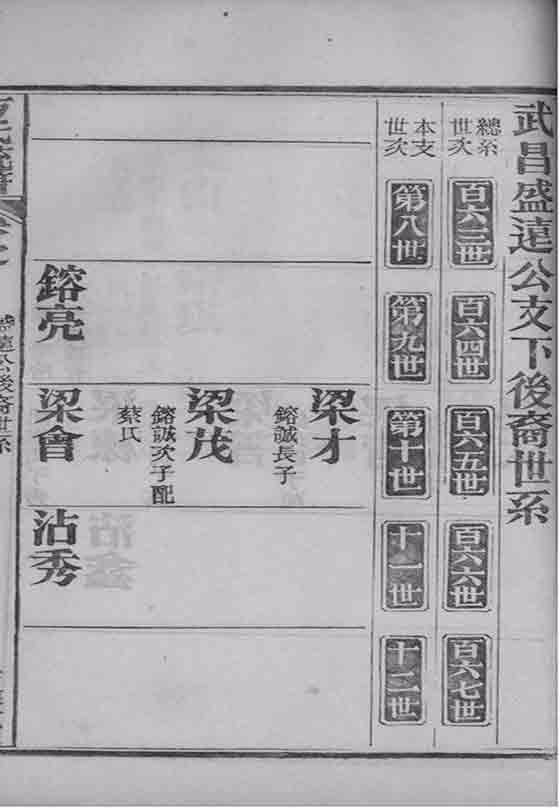 武昌盛遠公支下後裔世系
總系世次
百六三世
百六四世
百六五世
百六六世
百六七世
本支世次
第八世
第九世
第十世
十一世
十二世
鎔亮
梁才
鎔誠長子
梁茂
鎔誠次子配
蔡氏
梁會
沾秀
盛遠公後裔世系